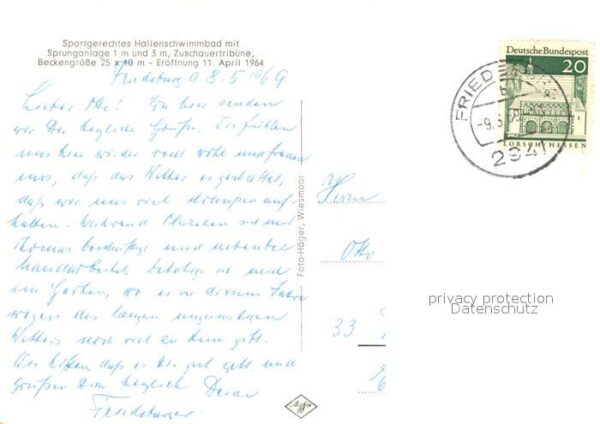 Sportgerechtes Hallenschwimmbad mit
Sprunganlage 1 m und 3 m, Zuschauertribüne,
Beckengröße 25 x 10 m - Eröffnung 11. April 1964
Friedeburg, d. 8.5.1969
Lieber Otto! Von hier senden
wir Dir herzliche Grüße. Wir fühlen
uns hier wieder recht wohl und freuen
uns, daß das Wetter es gestattet,
daß wir uns viel draußen auf-
halten. Während sich mit
Thomas beschäftigt und nebenbei
handarbeitet, betätige ich mich
im Garten, wo es in diesem Jahre
wegen des langen ungünstigen
Wetters noch viel zu tun gibt.
Wir hoffen, daß es Dir gut geht, und
grüßen Dich herzlich Deine
Friedeburger
Foto-Häger, Wiesmoor
Agfa
Herrn
Otto
33
Deutsche Bundespost
20
LORSCH/HESSEN
FRIEDE
b
-9.5.69
2941
privacy protection
Datenschutz